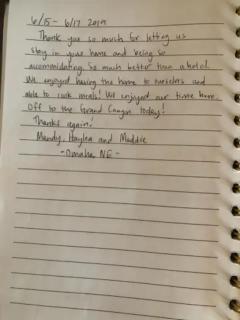 6/15 - 6/17 2019
Thank you so much for letting us
stay in your home and being so
accommodating. So much better than a hotel.
We enjoyed having the home to ourselves and
able to cook meals! We enjoyed our time here.
Off to the Grand Canyon today!
Thanks again!
Mandy, Haylea and Maddie
-Omaha NE-